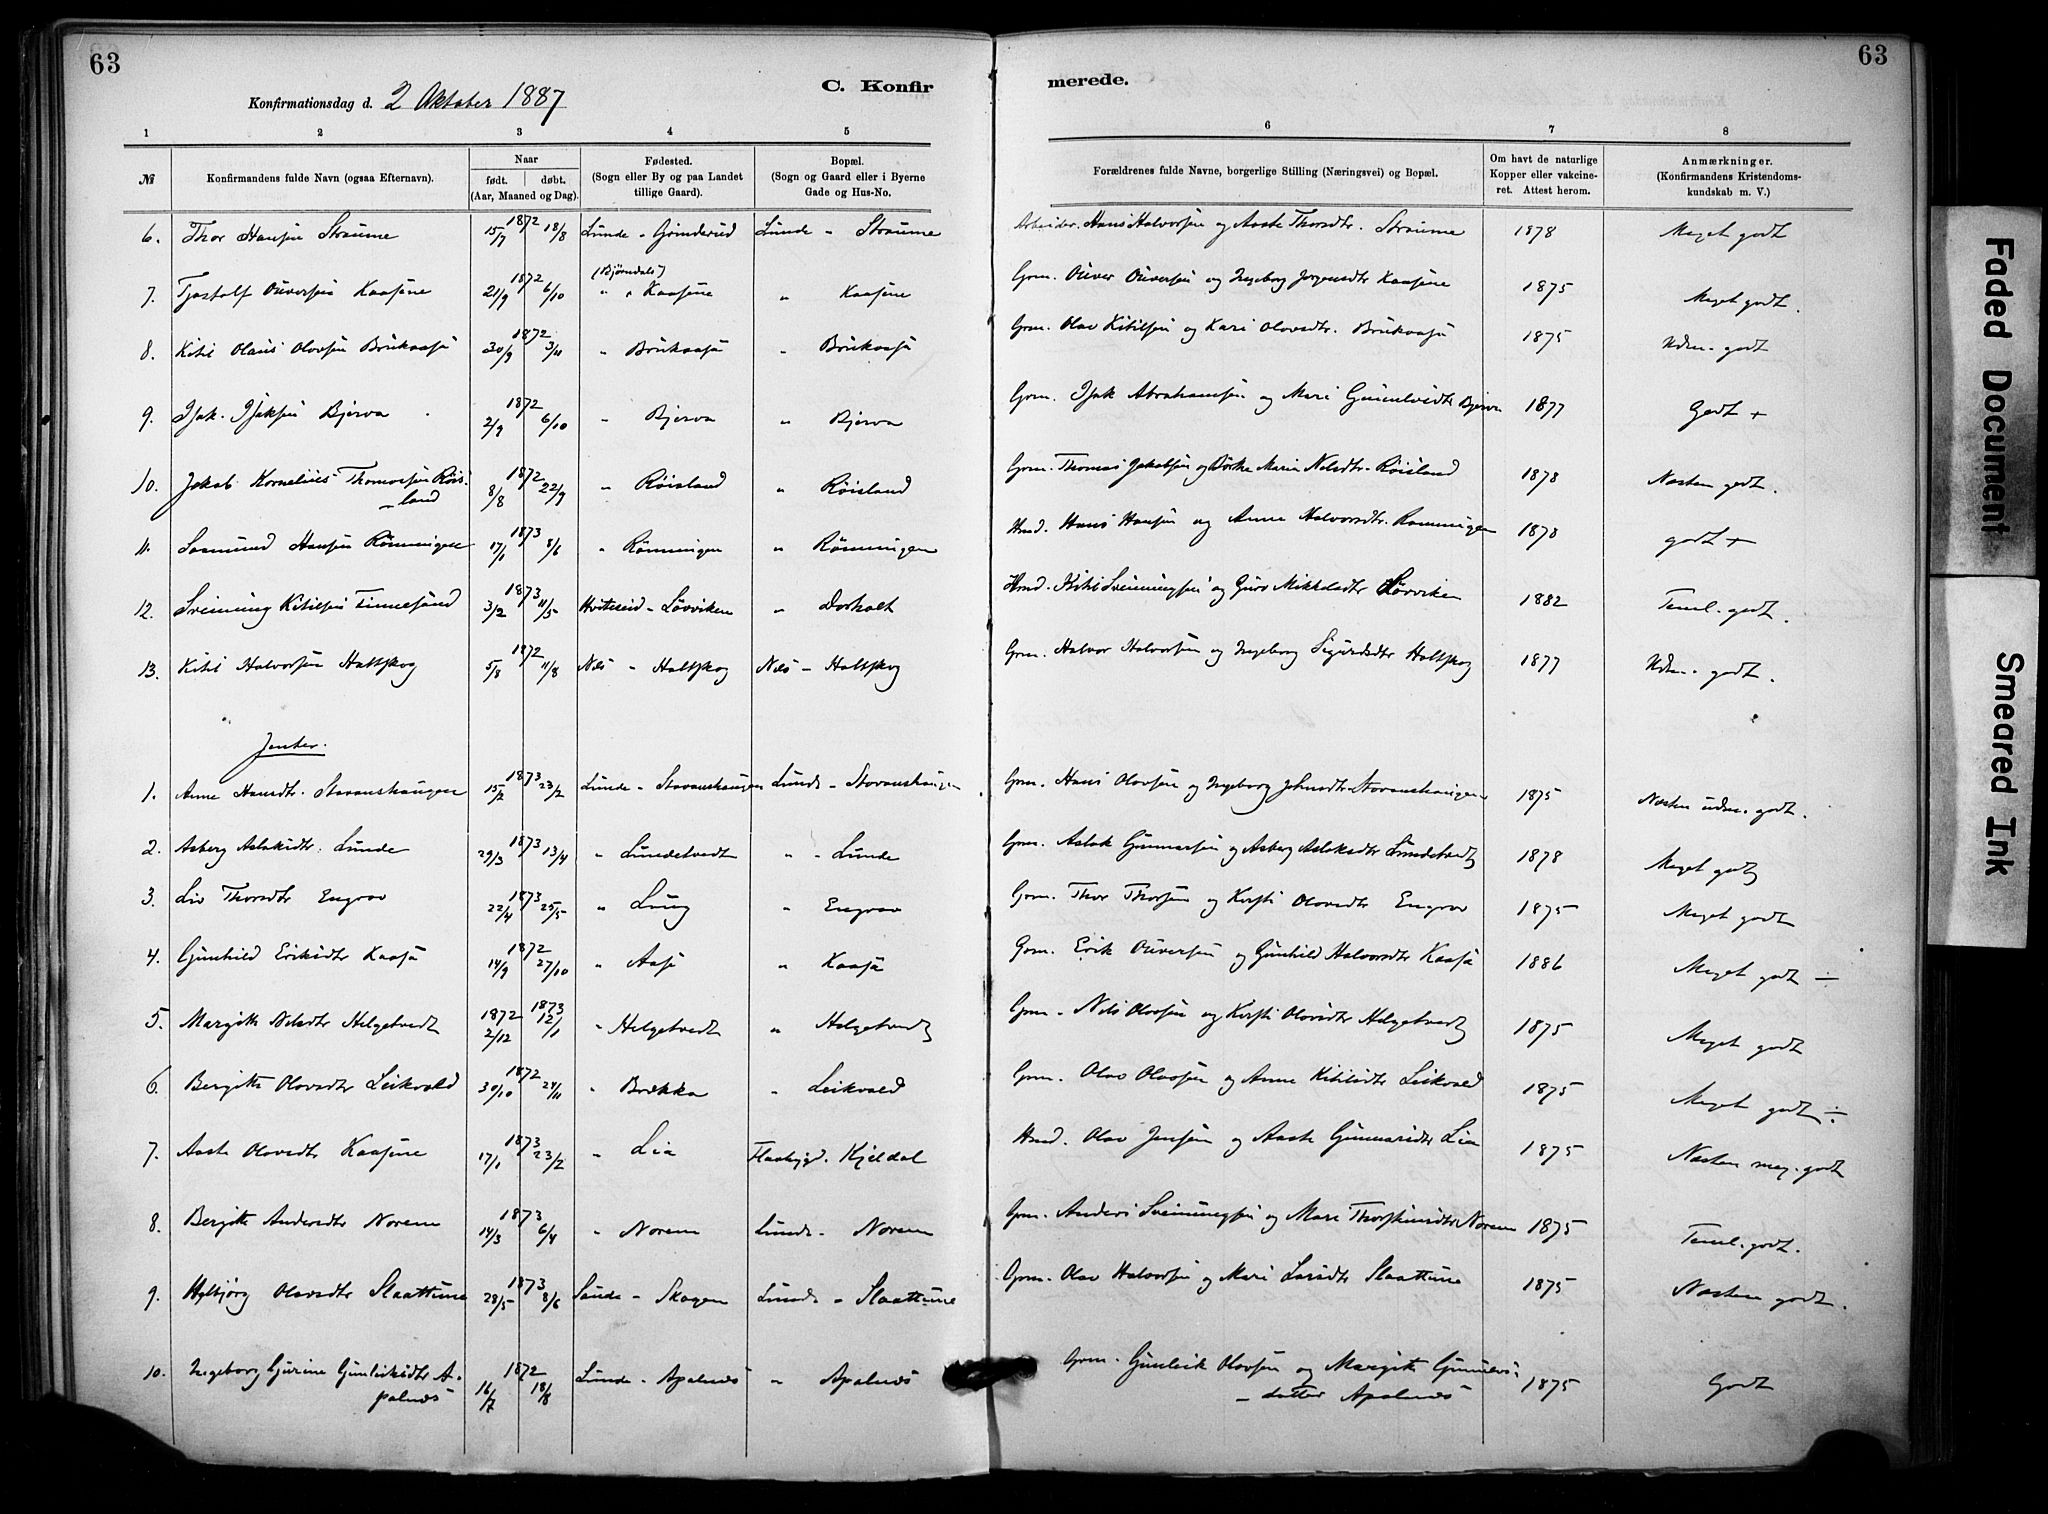 63
63
C. Konfir
merede.
Konfirmationsdag d. 2 Oktober 1887
1 2 3 4 5 6 7 8
№ Konfirmandens fulde Navn (ogsaa Efternavn).
Naar
født. døbt.
(Aar, Maaned og Dag).
Fødested.
(Sogn eller By og paa Landet
tillige Gaard).
Bopæl.
(Sogn og Gaard eller i Byerne
Gade og Hus-No.
Forældrenes fulde Navne, borgerlige Stilling (Næringsvei) og Bopæl.
Om havt de naturlige
Kopper eller vakcine-
ret. Attest herom.
Anmærkninger.
(Konfirmandens Kristendoms-
kundskab m. V.)
6. Thor Hansen Straume 1872 15/7 18/8 Lunde - Grinderud Lunde - Straume Arbeider. Hans Halvorsen og Aaste Thorsdtr. Straume 1878 Meget godt
(Bjørndals)
7. Tjostolf Ouversen Kaasene 1872 21/9 6/10 " " Kaasene " Kaasene Grm. Ouver Ouversen og Ingeborg Jørgensdtr Kaasene 1875 Meget godt.
8. Kitil Olaus Olovsen Brukaasa 1872 30/9 3/11 " Brukaasa " Brukaasa Grm. Olav Kitilsen og Kari Olovsdtr. Brukaasa 1875 Udm. godt
9. Isak Isaksen Bjerva 1872 2/9 6/10 " Bjerva " Bjerva Grm. Isak Abrahamsen og Mari Gunulvsdtr Bjerva 1877 Godt +
10. Jakob Kornelius Thomassen Röis-
land 1872 8/8 22/9 " Röisland " Röisland Grm. Thomas Jakobsen og Dorthe Marie Nelsdtr. Röisland 1878 Næsten godt.
11. Saamund Hansen Rönningen 1873 17/1 8/6 " Rönningen " Rönningen Hmd. Hans Hansen og Anne Halvorsdtr. Rönningen 1878 godt +
12. Sveinung Kitilsen Finnesand 1873 3/2 11/5 Hviteseid - Lövviken " Dorholt Hmd. Kitil Sveinungsen og Guro Mikkelsdtr Lövviken 1882 Teml. godt.
13. Kitil Halvorsen Holtskog 1872 5/8 11/8 Næs - Holtskog Næs - Holtskog Grm. Halvor Halvorsen og Ingeborg Sigurdsdtr Holtskog 1877 Udm. godt.
Jenter.
1. Anne Hansdtr. Stavanshaugen 1873 15/2 23/2 Lunde - Stavanshaugen Lunde - Stavanshaugen Grm. Hans Olovsen og Ingeborg Johnsdtr Stavanshaugen 1875 Næsten udm. godt.
2. Asberg Aslaksdtr. Lunde 1873 29/3 13/4 " Lundetvedt " - Lunde Grm. Aslak Gunnarsen og Asberg Aslaksdtr Lundetvedt 1878 Meget godt
3. Liv Thorsdtr Engrav 1873 22/4 25/5 " Lung " Engrav Grm. Thor Thorsen og Kersti Olovsdtr Engrav 1875 Meget godt
4. Gunhild Eriksdtr Kaasa 1872 14/9 27/10 " Aase " Kaasa Grm. Erik Ouversen og Gunhild Halvorsdtr Kaasa 1886 Meget godt ÷
5. Margith Nilsdtr Helgetvedt 1872 2/12 1873 12/1 " Helgetvedt " Helgetvedt Grm. Nils Olovsen og Kersti Olovsdtr Helgetvedt 1875 Meget godt
6. Bergith Olovsdtr Leikvold 1872 30/10 24/11 " Brekka " Leikvold Grm. Olav Olovsen og Anne Kitilsdtr Leikvold 1875 Meget godt ÷
7. Aaste Olovsdtr Kaasene 1873 17/1 23/2 " Lia Flaabygd. Kjeldal Hmd. Olav Jensen og Aaste Gunnarsdtr Lia 1875 Næsten meg. godt
8. Bergith Andersdtr Norem 1873 14/3 6/4 " Norem Lunde - Norem Grm. Anders Sveinungsen og Mari Thorsteinsdtr Norem 1875 Teml. godt.
9. Hylbjörg Olovsdtr Slaattune 1873 28/5 8/6 Saude - Skogen Lunde - Slaattune Grm. Olav Halvorsen og Mari Larsdtr Slaattune 1875 Næsten godt.
10. Ingeborg Gurine Gunleiksdtr A-
palnæs 1872 16/7 18/8 Lunde - Apalnæs " Apalnæs Grm. Gunleik Olovsen og Margith Gunulvs-
datter Apalnæs 1875 Godt
Faded Document
Smeared Ink